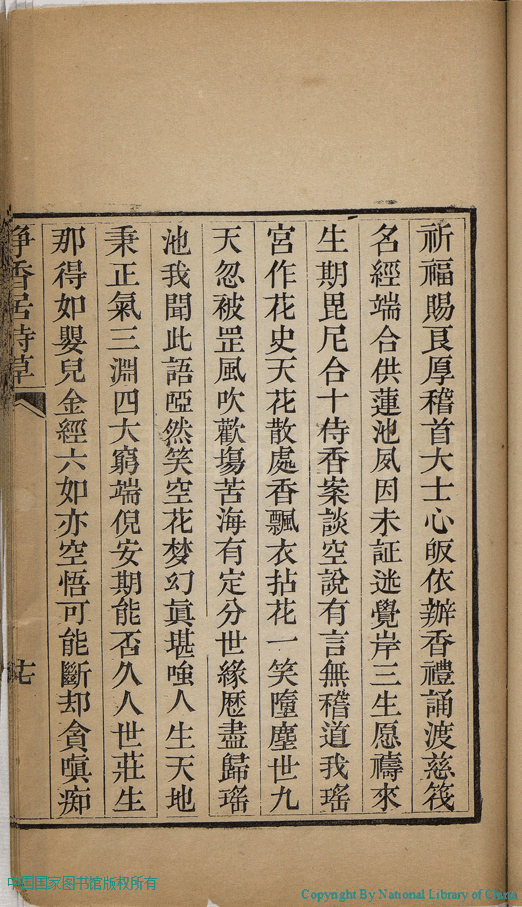 祈福賜良厚稽首大士心皈依辦香禮誦渡慈筏
名經端合供蓮池夙因未証迷覺岸三生愿禱來
生期毘尼合十侍香案談空說有言無稽道我瑤
宮作花史天花散處香飄衣拈花一笑墮塵世九
天忽被罡風吹歡塲苦海有定分世緣歷盡歸瑤
池我聞此語啞然笑空花梦幻眞堪嗤人生天地
秉正氣三淵四大窮端倪安期能否久人世莊生
那得如嬰兒金經六如亦空悟可能斷却貪嗔痴
淨香居詩草
七
中国国家图书馆版权所有
Copyright By National Library of China